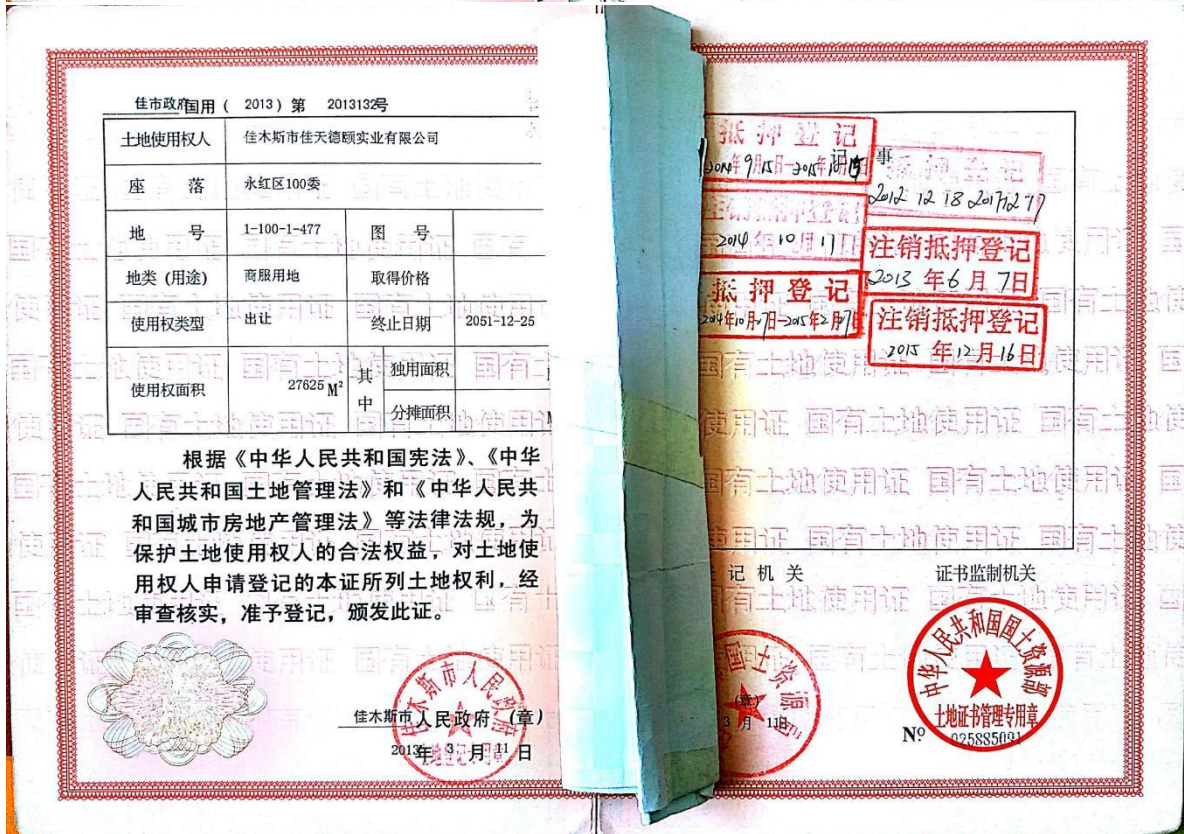 佳市政府国用( 2013)第 2013132号
土地使用权人 佳木斯市佳天德颐实业有限公司
座 落 永红区100委
地 号 1-100-1-477 图 号
地类(用途) 商服用地 取得价格
使用权类型 出让 终止日期 2051-12-25
使用权面积 27625 M² 其中 独用面积
分摊面积
根据《中华人民共和国宪法》、《中华
人民共和国土地管理法》和《中华人民共
和国城市房地产管理法》等法律法规,为
保护土地使用权人的合法权益,对土地使
用权人申请登记的本证所列土地权利,经
审查核实,准予登记,颁发此证。
佳木斯市人民政府 (章)
2013年 3 月 11 日
佳木斯市人民政府
土地登记专用章
记 事
抵押登记
2014年9月15日-2015年
注销抵押登记
2014年10月17日
抵押登记
2014年10月17日-2015年2月17日
抵押登记
2012 12 18 2017 12 17
注销抵押登记
2013 年 6 月 7日
注销抵押登记
2015 年 12月 16日
记 机 关
国土资源
(章)
3 月 11日
证书监制机关
中华人民共和国国土资源部
土地证书管理专用章
Nº 025885091
国有土地使用证